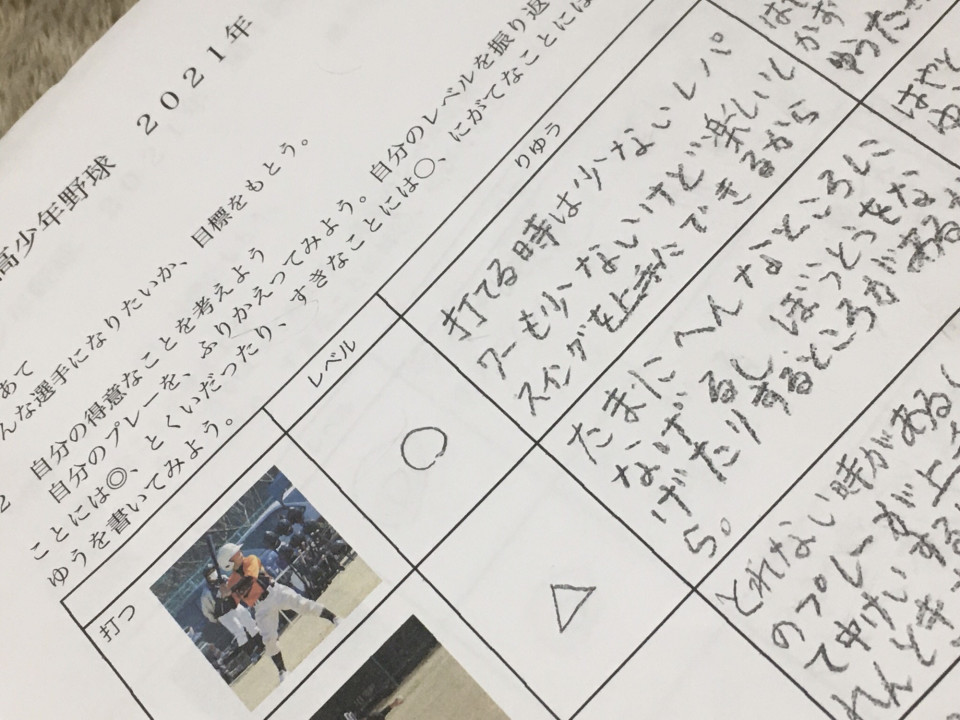 高少年野球 2021年
あて
んな選手になりたいか、目標をもとう。
2 自分の得意なことを考えよう
自分のプレーを、ふりかえってみよう。自分のレベルを振り返
ことには◎、とくいだったり、すきなことには○、にがてなことには
ゆうを書いてみよう。
レベル
りゆう
打つ
○
打てる時は少ないしパ
ワーも少ないけど、楽しいし
スイングを上手にできるから
△
たまにへんなところに
なげるし、ぼうとうをな
げたりするところがあるか
ら。
とれない時がある
のプレーが上